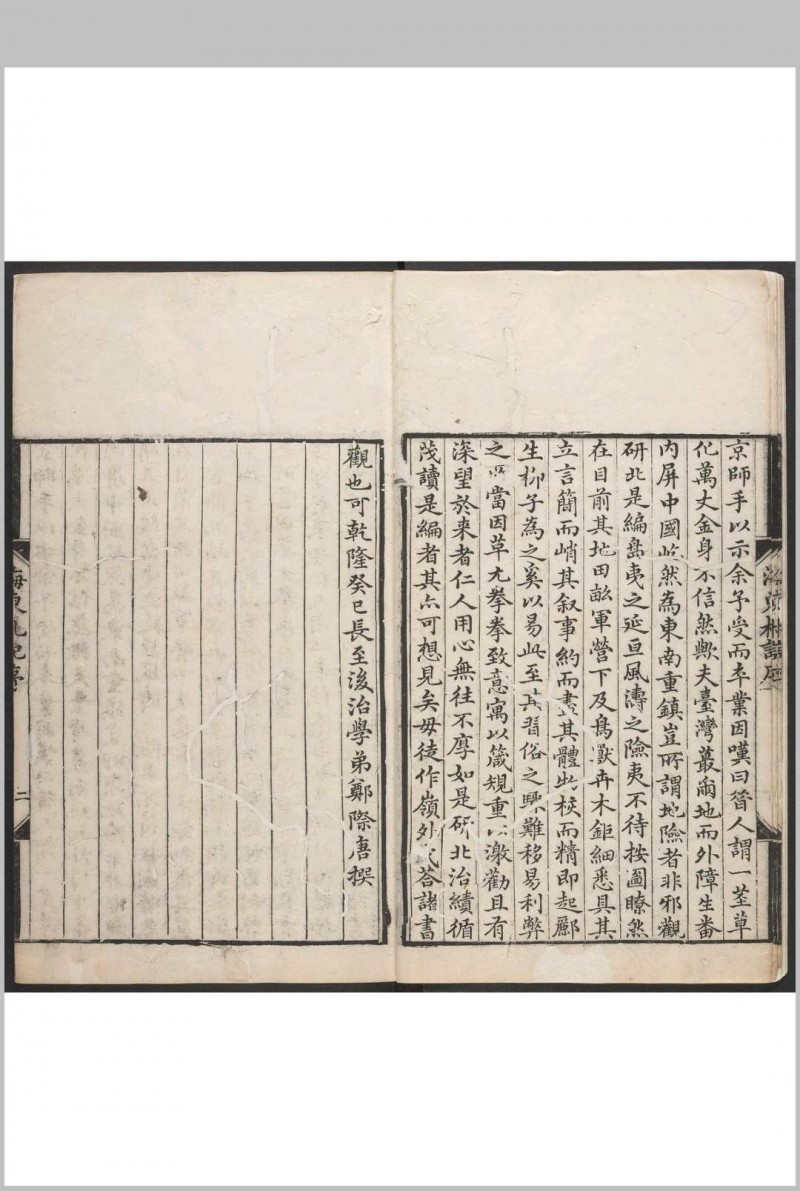 京師手以示余予受而卒業因嘆曰昝人謂一莖草
化萬丈金身不信然歟夫臺灣蕞爾地而外障生番
内屏中國屹然為東南重鎮豈所謂地險者非邪觀
研北是編島夷之延亘風濤之險夷不待按圖瞭然
在目前其地田畝軍營下及鳥獸卉木鉅細悉具其
立言簡而峭其叙事約而盡其體裁核而精即起酈
生柳子為之奚以易此至其習俗之興難移易利弊
之當因革尤拳拳致意寓以箴規重以激勸且有
深望於来者仁人用心無往不厚如是研北治績循
茂讀是編者其亦可想見矣毋徒作嶺外代答諸書
觀也可乾隆癸巳長至後治學弟鄭際唐撰
海東札記序
二